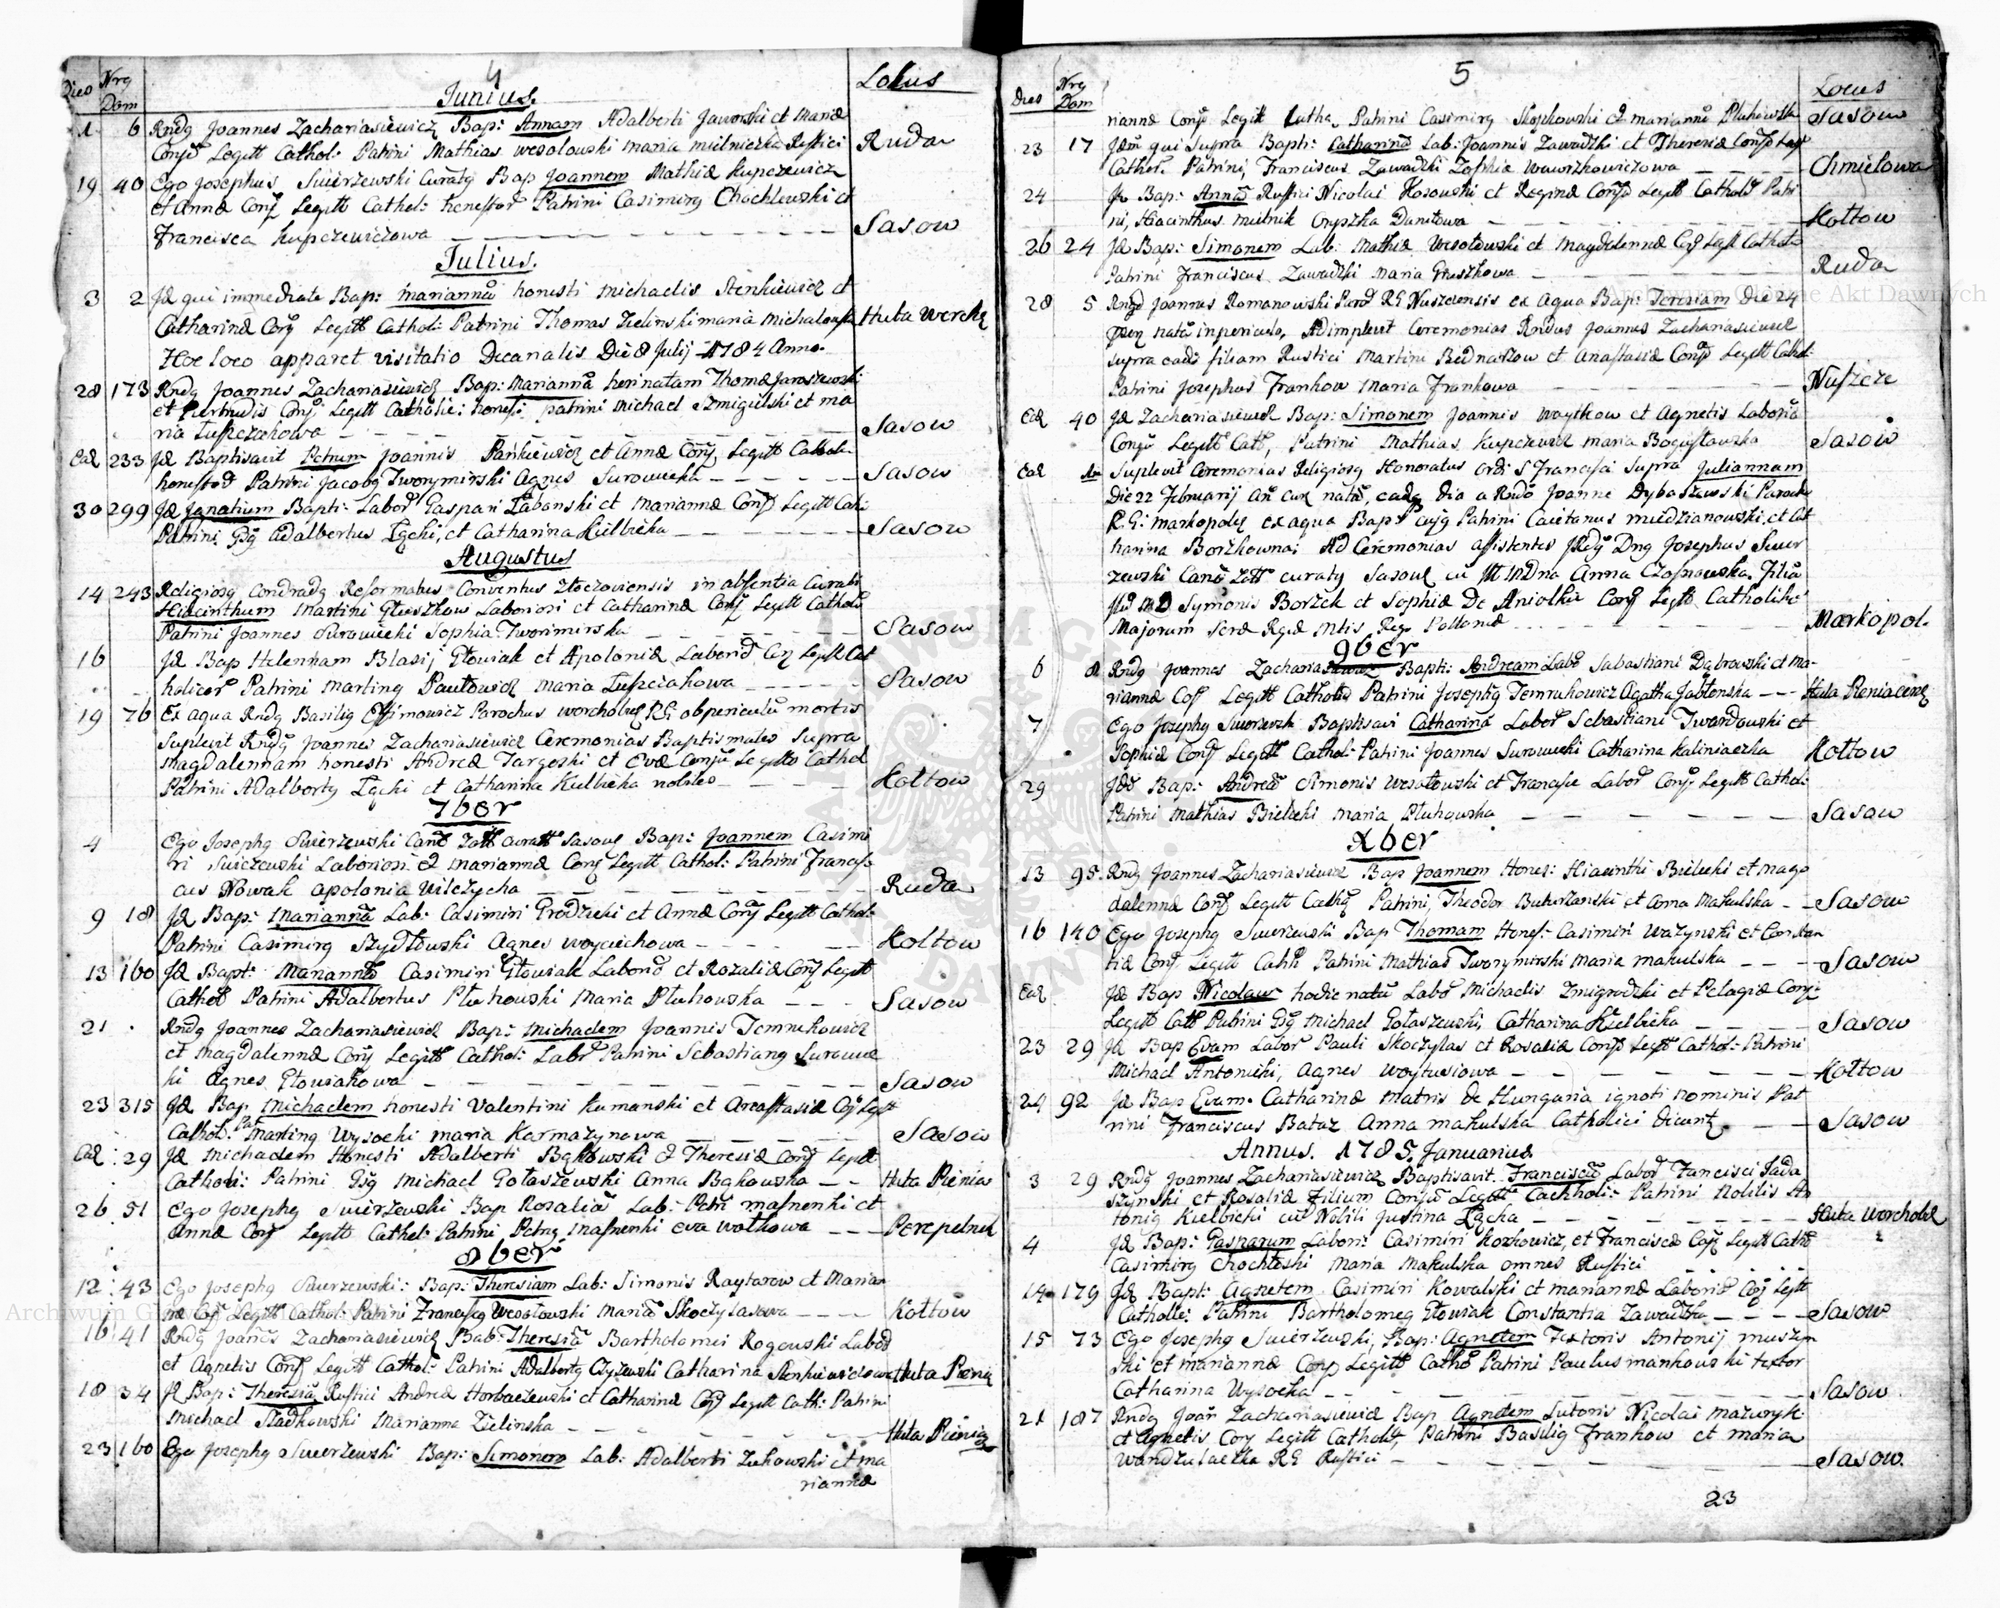 4
Dies Nrg Dom Locus
Junius.
1 6 Rndg Joannes Zachariasiewicz Bap: Annam Adalberti Jaworski et Mariæ
Conju Legitt Cathol: Patrini Mathias Wesołowski Maria Mielniczka Rustici Ruda
19 40 Ego Josephus Swierzewski Curatg Bap Joannem Mathiæ Kupczewicz
et Annæ Conj Legitt Cathol: Patrini Casimirg Chochlewski et
Francisca Kupczewiczowa Sasow
Julius.
3 2 Jd qui immediate Bap: Mariannã honesti Michaelis Stenkiewicz et
Catharinæ Conj Legitt Cathol: Patrini Thomas Zielinski Maria Michalowska Huta Wercho
Hoc loco apparet visitatio Decanalis Die 8 Julij 1784 Anno.
28 173 Rndg Joannes Zachariasiewicz Bap: Mariannã heri natam Thomæ Jaroszewski
et Gertrudis Conj: Legitt Catholic: honest: patrini Michael Szmigielski et Ma
ria Tupczakowa Sasow
Ead 233 Jd Baptisavit Petrum Joannis Pańkiewicz et Annæ Conj Legitt Cathol:
honestor Patrini Jacobg Tworymirski Agnes Surowiecka Sasow
30 299 Jd Ignatium Bapti: Labor Gaspari Łabanski et Mariannæ Conj Legitt Cath:
Patrini Gsg Adalbertus Łącki, et Catharina Kielbicka Sasow
Augustus
14 243 Religiosg Condradg Reformatus Conventus Złoczoviensis in absentia Curati
Hiacinthum Martini Głuszkow Laboriosi et Catharinæ Conj Legitt Cathol
Patrini Joannes Surowiecki Sophia Tworimirska Sasow
16 Jd Bap Helennam Blasij Głowiak et Apoloniæ Laborio Conj Legitt Cat
holicor Patrini Marting Pawłowicz Maria Tupciakowa Sasow
19 76 Ex aqua Rndg Basilig Parochus Worchobuz RG ob periculũ mortis
Suplevit Rndg Joannes Zachariasiewicz Ceremonias Baptismales Supra
Magdalennam honesti Andreæ Targoski et Evæ Conju Legitto Cathol
Patrini Adalbertg Łącki et Catharina Kielbicka nobiles Kołtow
7ber
4 Ego Josephg Swierzewski Cano Zołk Curatg Sasoug Bap: Joannem Casimi
ri Swiczewski Laboriosi et Mariannæ Conj Legitt Cathol: Patrini Francis
cus Nowak Apolonia Wilczycha Ruda
9 18 Jd Bap: Mariannã Lab: Casimiri Grodzicki et Annæ Conj Legitt Cathol:
Patrini Casimirg Szydłowski Agnes Woyciechowa Kołtow
13 160 Jd Bapt: Mariannã Casimiri Głowiak Laborio et Rozaliæ Conj Legitt
Cathol Patrini Adalbertus Pluhowski Maria Pluhowska Sasow
21 Rndg Joannes Zachariasiewicz Bap: Michaelem Joannis Temrukowicz
et Magdalennæ Conj Legitt Cathol: Labor Patrini Sebastiang Surowiec
ki Agnes Głowiakowa Sasow
23 315 Jd Bap Michaelem honesti Valentini Kumanski et Anastasiæ Conj Legitt
Cathol: Pat Marting Wysocki Maria Karmazynowa Sasow
Ead 29 Jd Michaelem Honesti Adalberti Bąkowski et Theresiæ Conj Legitt
Catholi: Patrini Gsg Michael Gołaszewski Anna Bąkowska Huta Pienia
26 51 Ego Josephg Swierzewski Bap Rosaliã Lab: Petri Masnenki et
Annæ Conj Legitt Cathol: Patrini Petrg Masnenki Eva Wołkowa Perepelnik
8ber
12 43 Ego Josephg Swierzewski: Bap: Theresiam Lab: Simonis Raytarow et Marian
næ Conj Legitt Cathol: Patrini Franciscg Wesołowski Maria Skoczylasowa Kołtow
16 41 Rndg Joanes Zachariasiewicz Bab: Theresiã Bartholomei Rogowski Labor
et Agnetis Conj Legitt Cathol: Patrini Adalbertg Czyżewski Catharina Stenkiewiczowa Huta Pienia
18 34 Jd Bap: Theresiã Rustici Andreæ Horbaczewski et Catharinæ Conj Legitt Cath: Patrini
Michael Sładkowski Marianna Zielinska Huta Pieniac
23 160 Ego Josephg Swierzewski Bap: Simonem Lab: Adalberti Zukowski et Ma
riannæ
5
Dies Nrg Dom Locus
riannæ Conj Legitt Catho, Patrini Casimirg Skopkowski et Mariannã Pluhowska Sasow
23 17 Jdem qui Supra Bapti: Catharinã Lab: Joannis Zawadzki et Theresiæ Conj Legitt
Cathol. Patrini, Franciscus Zawadzki Zophia Wawrzkowiczowa Chmielowa
24 Jd Bap: Annã Rustici Nicolai Kosowski et Reginæ Conj Legitt Cathol Patri
ni, Hiacinthus Mielnik Oryszka Danilowa Kołtow
26 24 Jd Bap: Simonem Lab: Mathiæ Wesołowski et Magdalennæ Conj Legitt Cathol:
Patrini Franciscus Zawadzki Maria Głuszkowa Ruda
28 5 Rngd Joannes Romanowski Paro RG Nuszczensis ex Aqua Bap: Teresiam Die 24
natã in periculo, Adimplevit Ceremonias Rndus Joannes Zachariasiewicz
supra eadē filiam Rustici Martini Bednarzow et Anastasiæ Conj Legitt Cathol:
Patrini Josephus Frankow Maria Frankowa Nuszcze
Ead 40 Jd Zachariasiewicz Bap: Simonem Joannis Woytkow et Agnetis Laborio
Conju Legitt Cath, Patrini Mathias Kupczewicz Maria Bogusławska Sasow
Ead Suplevit Ceremonias Religiosg Honoratus Ordi S Francisci Supra Juliannam
Die 22 Februarij natã, eadg dia a Rndo Joanne Dybaszewski Parocho
R.G: Markopoleg ex aqua Bap: cujg Patrini Caietanus Miedzianowski, et Cat
harina Borzkowna; Ad Ceremonias assistentes Dng Josephus Swier
zewski Cano Zołk Curatg Sasoug cũ M Dna Anna Czosnowska. Filiã
Symonis Borzek et Sophiæ De Aniołki Conj Legtt Catholiko
Majorum Markopol.
9ber
6 8 Rndg Joannes Zachariasiewicz Bapti: Andream Labo Sabastiani Dąbrowski et Ma
riannæ Conj Legitt Cathol Patrini Josephg Temrukowicz Agatha Jabłonska Huta Pieniacka
7 Ego Josephg Swierzewski Baptisavi Catharinã Labor Sebastiani Twardowski et
Sophiæ Conj Legitt Cathol: Patrini Joannes Surowiecki Catharina Kaliniaczka Kołtow
29 Jde Bap: Andreã Simonis Wesołowski et Francisc Labor Conj Legitt Cathol:
Patrini Mathias Bielecki Maria Pluhowska Sasow
Xber
13 95 Rndg Joannes Zachariasiewicz Bap Joannem Hones: Hiacinthi Bielecki et Mag
dalennæ Conj Legitt Cathg Patrini, Theodor Buturlanski et Anna Makulska Sasow
16 140 Ego Josephg Swierzewski Bap Thomam Hones: Casimiri Wazynski et Constan
tiæ Conj Legitt Cath Patrini Mathias Tworymirski Maria Makulska Sasow
Ead Jd Bap Nicolaum hodie natũ Labo Michaelis Zmigrodzki et Pelagiæ Conj:
Legitt Cath Patrini Gsg Michael Gołaszewski, Catharina Kielbicka Sasow
23 29 Jd Bap Evam Labor Pauli Skoczylas et Rosaliæ Conj Legitt Cathol: Patrini
Michael Antonicki, Agnes Woytusiowa Kołtow
24 92 Jd Bap Evam. Catharinæ matris de Hungaria ignoti nominis Pat
rini Franciscus Bataz Anna Makulska Catholici dicunt Sasow
Annus. 1785. Januarius
3 29 Rndg Joannes Zachariasiewicz Baptisavit Franciscũ Labor Francisci Sada
szynski et Rosaliæ Filium Conju Legitt Cachholi: Patrini Nobilis An
tonig Kielbicki cũ Nobili Justina Łącka Huta Worchobuz
4 Jd Bap: Gasparum Labori: Casimiri Koskowicz, et Franciscæ Conj Legitt Cath
Casimirg Chochleski Maria Makulska omnes Rustici
14 179 Jd Bapt: Agnetem Casimiri Kowalski et Mariannæ Laborio Conj Legtt
Catholic: Patrini Bartholomeg Głowiak Constantia Zawadzka Sasow
15 73 Ego Josephg Swierzewski, Bap: Agnetem Textoris Antonij Muszyn
ski et Mariannæ Conj Legitt Catho Patrini Paulus Mankowski textor
Catharina Wysocka Sasow
21 187 Rndg Joan Zachariasiewicz Bap Agnetem Sutoris Nicolai Mazuryk
et Agnetis Conj Legitt Catholig, Patrini Basilig Frankow et Maria
Wandzulaczka RG Rustici Sasow.
23
Archiwum Główne Akt Dawnych